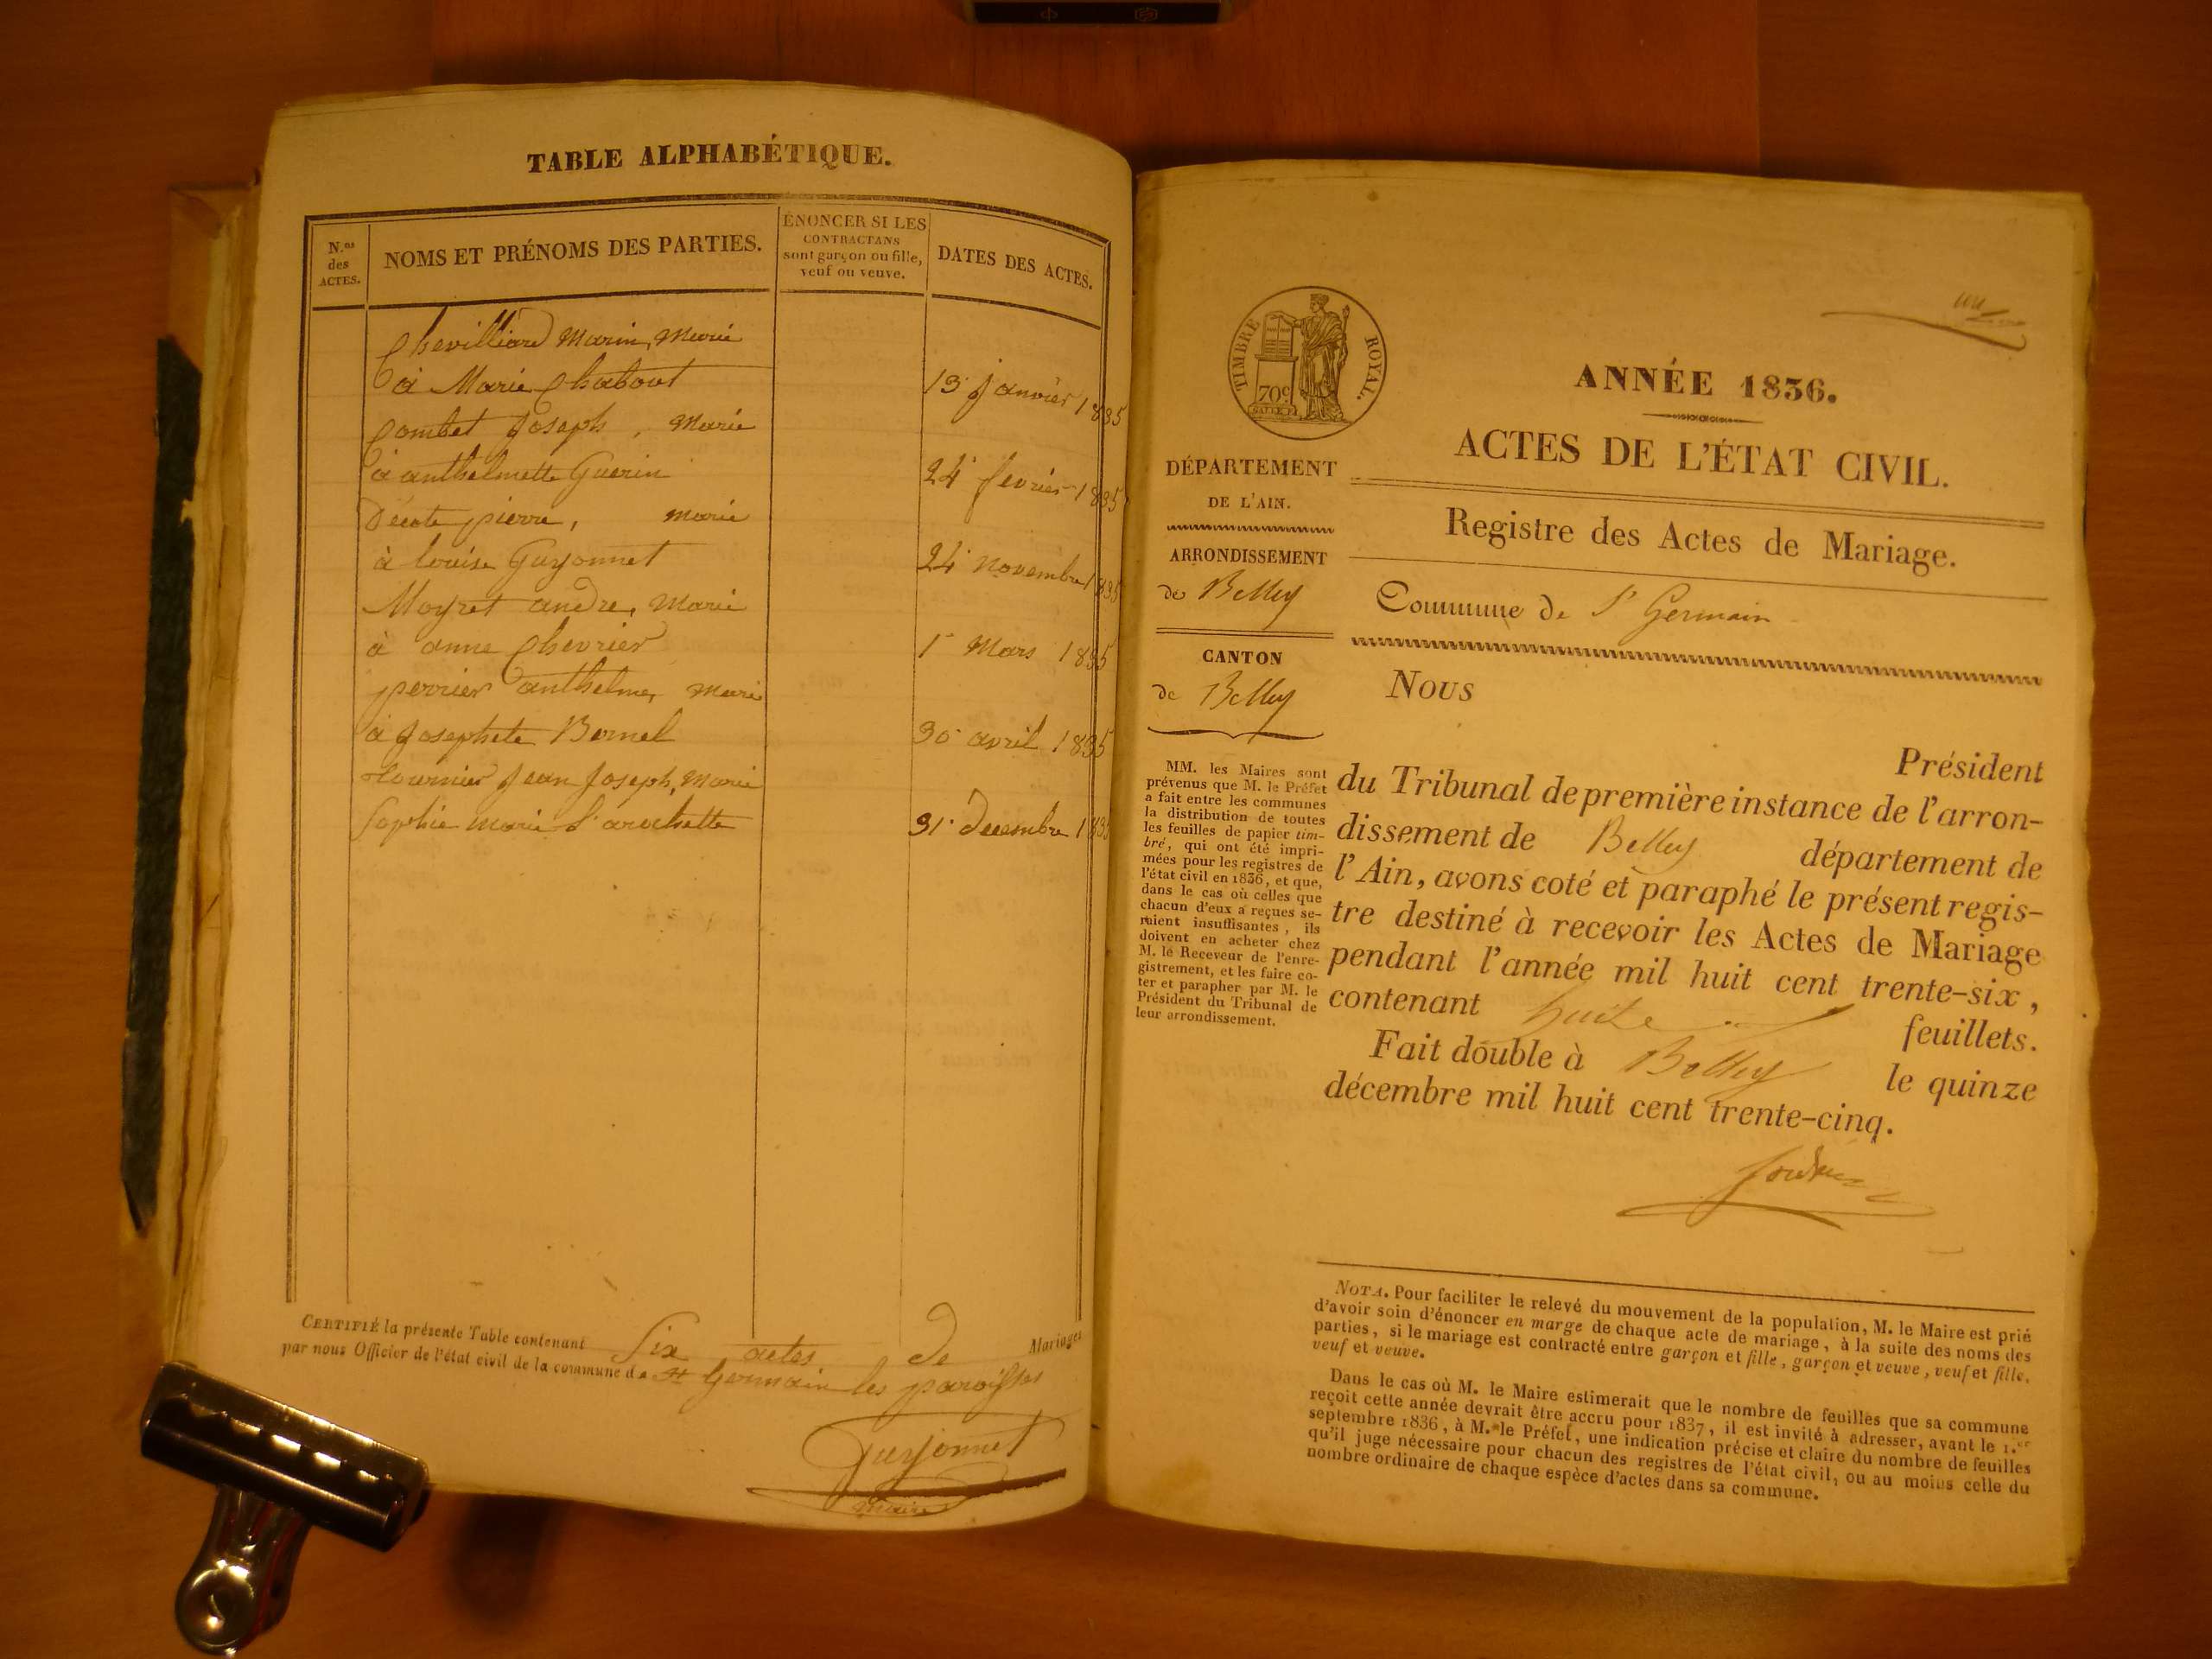 TABLE ALPHABÉTIQUE.
N.os des ACTES.
NOMS ET PRÉNOMS DES PARTIES.
ÉNONCER SI LES
CONTRACTANS
sont garçon ou fille,
veuf ou veuve.
DATES DES ACTES.
Chevilliard Marin, Marié
à Marie Chabout 13 janvier 1835
Combet Joseph, Marié
à anthelmette Guerin 24 fevrier 1835
Décote pierre, marié
à louise Guyonnet 24 novembre 1835
Moyret andre, Marié
à anne Chevrier 1 Mars 1835
perrier anthelme, Marié
à Josephete Bornel 30 avril 1835
tournier Jean Joseph, Marié
Sophie marie 31 decembre 1835
CERTIFIÉ la présente Table contenant Six actes de Mariages
par nous Officier de l'état civil de la commune de St Germain les paroisses
Guyonnet
maire
TIMBRE ROYAL.
70c
ANNÉE 1836.
ACTES DE L'ÉTAT CIVIL.
Registre des Actes de Mariage.
Commune de St Germain
DÉPARTEMENT
DE L'AIN.
ARRONDISSEMENT
de Belley
CANTON
de Belley
MM. les Maires sont
prévenus que M. le Préfet
a fait entre les communes
la distribution de toutes
les feuilles de papier tim-
bré, qui ont été impri-
mées pour les registres de
l'état civil en 1836, et que,
dans le cas où celles que
chacun d'eux a reçues se-
raient insuffisantes, ils
doivent en acheter chez
M. le Receveur de l'enre-
gistrement, et les faire co-
ter et parapher par M. le
Président du Tribunal de
leur arrondissement.
Nous
Président
du Tribunal de première instance de l'arron-
dissement de Belley département de
l'Ain, avons coté et paraphé le présent regis-
tre destiné à recevoir les Actes de Mariage
pendant l'année mil huit cent trente-six,
contenant huit feuillets.
Fait double à Belley le quinze
décembre mil huit cent trente-cinq.
NOTA. Pour faciliter le relevé du mouvement de la population, M. le Maire est prié
d'avoir soin d'énoncer en marge de chaque acte de mariage, à la suite des noms des
parties, si le mariage est contracté entre garçon et fille, garçon et veuve, veuf et fille,
veuf et veuve.
Dans le cas où M. le Maire estimerait que le nombre de feuilles que sa commune
reçoit cette année devrait être accru pour 1837, il est invité à adresser, avant le 1.er
septembre 1836, à M. le Préfet, une indication précise et claire du nombre de feuilles
qu'il juge nécessaire pour chacun des registres de l'état civil, ou au moins celle du
nombre ordinaire de chaque espèce d'actes dans sa commune.